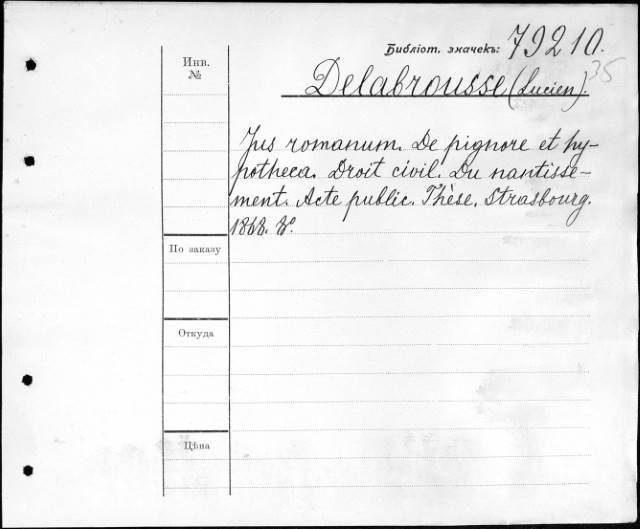 Библіот. значекъ: 79210.
35
Инв.
№
Delabrousse (Lucien).
Jus romanum. De pignore et hy-
potheca. Droit civil. Du nantisse-
ment. Acte public. Thèse, Strasbourg.
1868. 8°.
По заказу
Откуда
Цѣна